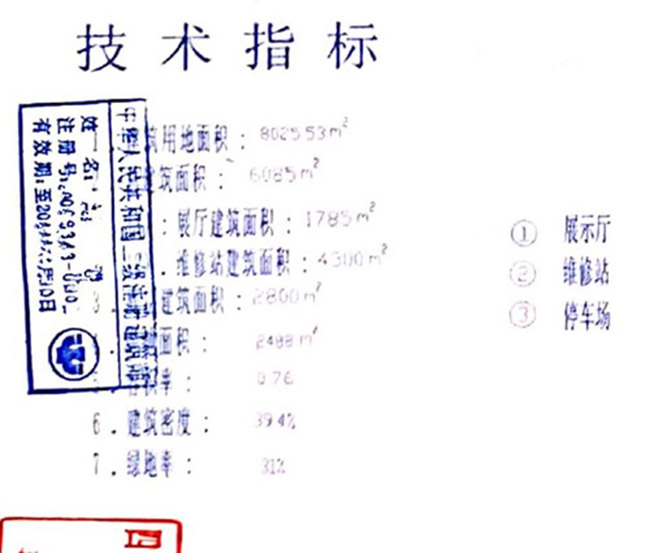 技术指标
筑用地面积：8025.53m²
建筑面积：6085m²
：展厅建筑面积：1785m²
．维修站建筑面积：4300m²
3 建筑面积：2800m²
面积：2488m²
容积率：0.76
6．建筑密度：39.4%
7．绿地率：31%
① 展示厅
② 维修站
③ 停车场
中华人民共和国二级注册建筑师
姓名
注册号
有效期：至20 月10日